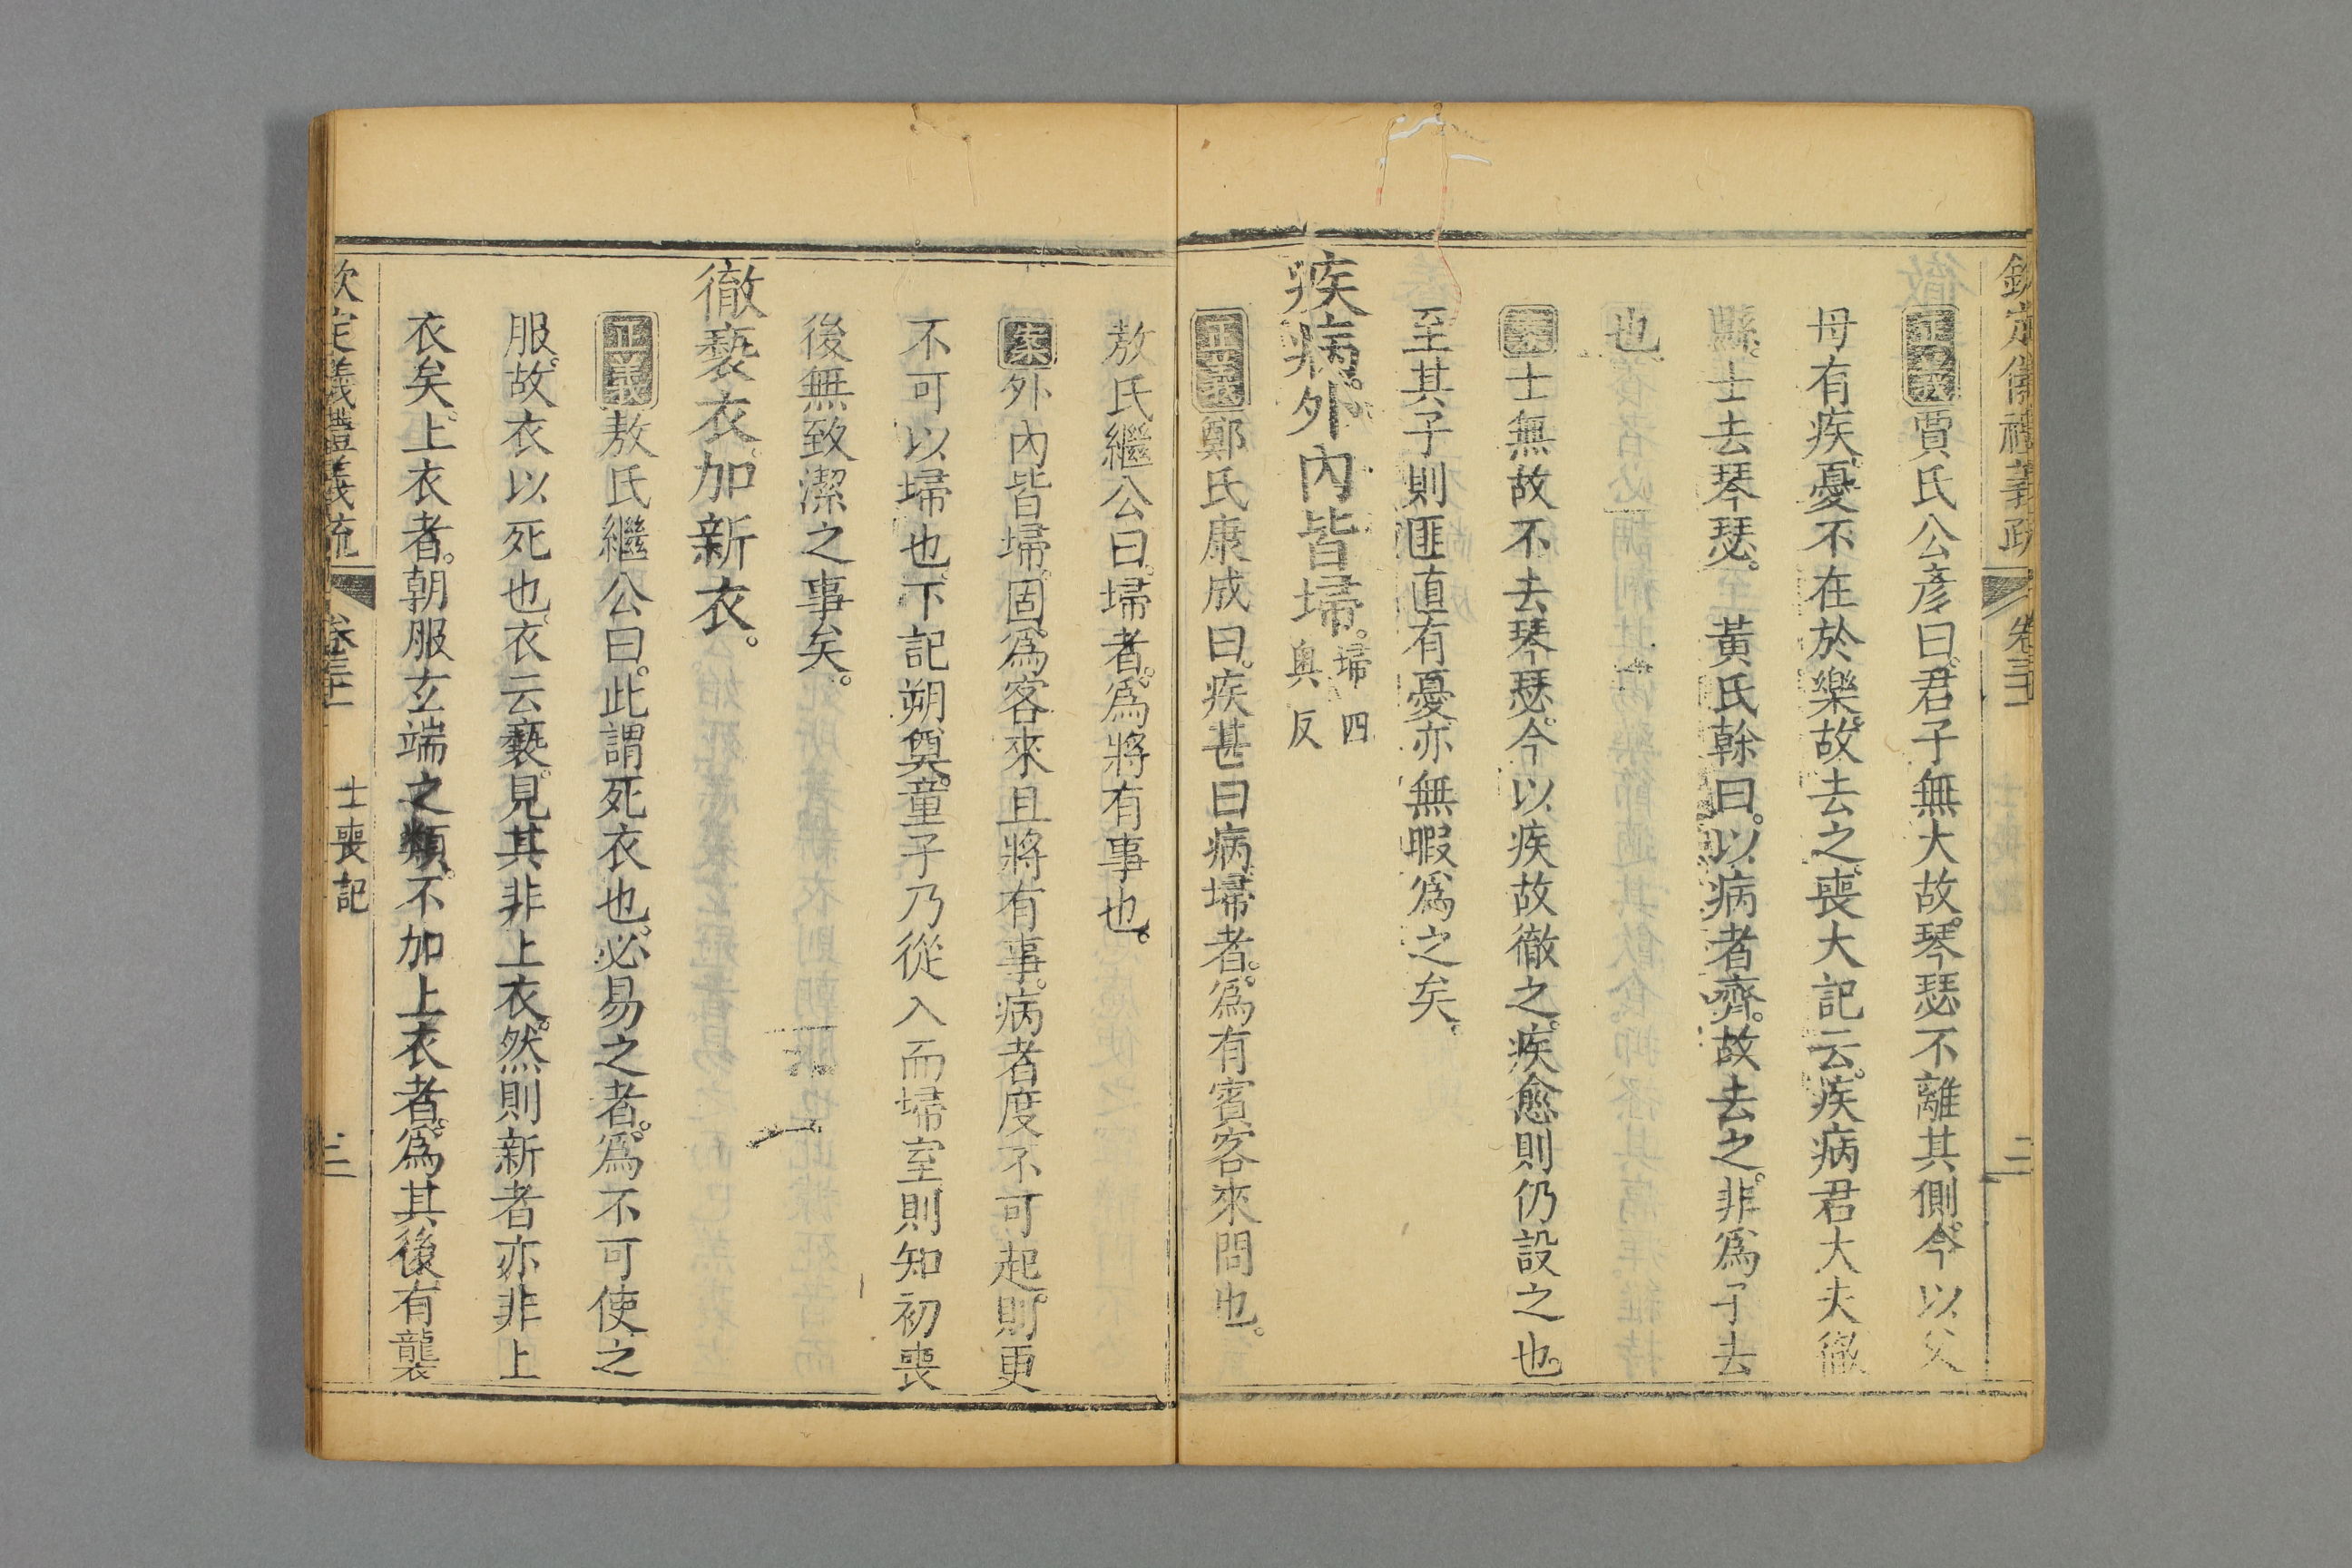 欽定儀禮義疏 卷三十一 二
正義賈氏公彥曰。君子無大故。琴瑟不離其側。今以父
母有疾。憂不在於樂。故去之。喪大記云。疾病。君大夫徹
縣。士去琴瑟。 黃氏榦曰。以病者齊。故去之。非爲子去
也
案士無故不去琴瑟。今以疾故徹之。疾愈則仍設之也。
至其子則匪直有憂。亦無暇爲之矣。
疾病。外內皆埽。埽四奧反
正義鄭氏康成曰。疾甚曰病。埽者。爲有賓客來問也。
敖氏繼公曰。埽者。爲將有事也。
案外內皆埽。固爲客來。且將有事。病者度不可起。則更
不可以埽也。下記朔奠。童子乃從入而埽室。則知初喪
後無致潔之事矣。
徹褻衣。加新衣。
正義敖氏繼公曰。此謂死衣也。必易之者。爲不可使之
服故衣以死也。衣云褻。見其非上衣。然則新者亦非上
衣矣。上衣者。朝服玄端之類。不加上衣者。爲其後有襲
欽定儀禮義疏 卷三十一 士喪記 二